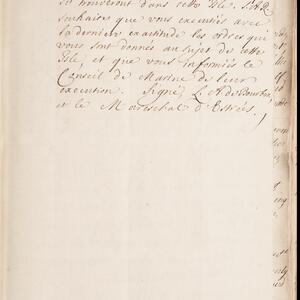 se trouveront dans cette Isle. S.A.R.
souhaitte que vous executiés avec
la derniere exactitude les ordres qui
vous sont donnés au sujet de cette
Isle, et que vous informiés le
Conseil de Marine de leur
execution. Signé L. A. de Bourbon,
et le Mareschal d'Estrées,